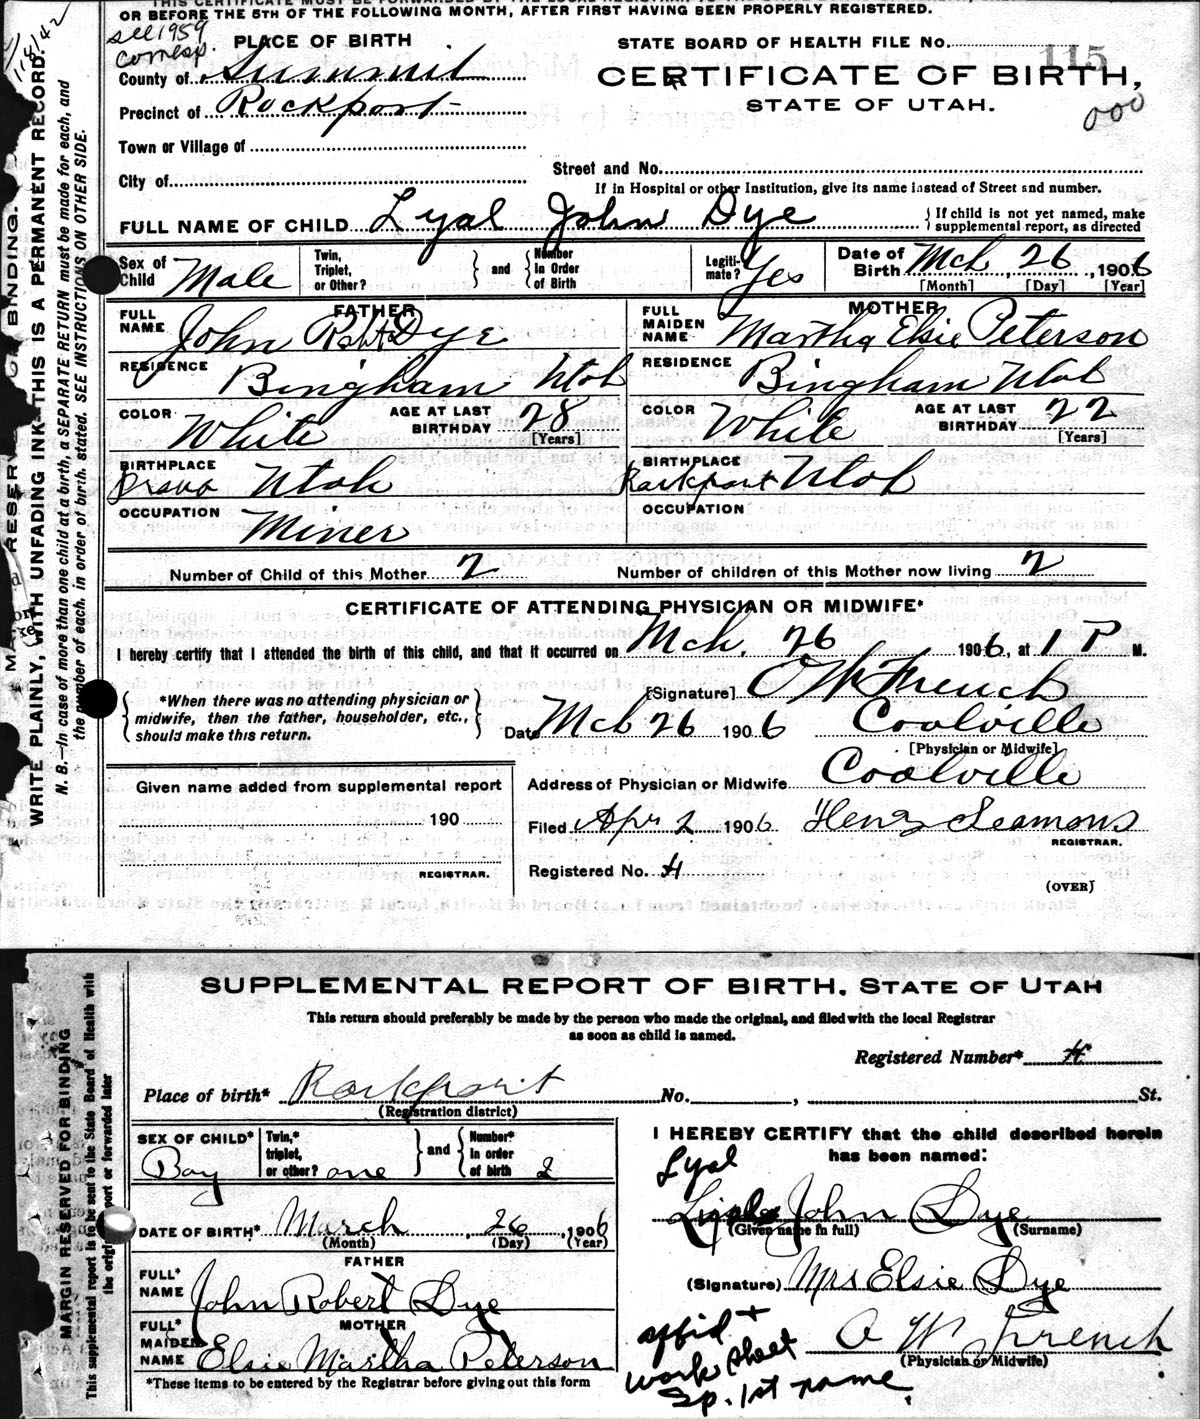 OR BEFORE THE 5TH OF THE FOLLOWING MONTH, AFTER FIRST HAVING BEEN PROPERLY REGISTERED.
see 1959
corresp.
PLACE OF BIRTH
County of Summit
Precinct of Rockport
Town or Village of
City of
STATE BOARD OF HEALTH FILE No. 115
CERTIFICATE OF BIRTH,
STATE OF UTAH.
000
Street and No.
If in Hospital or other Institution, give its name instead of Street and number.
FULL NAME OF CHILD Lyal John Dye
If child is not yet named, make supplemental report, as directed
Sex of Child Male
Twin, Triplet, or Other?
and
Number In Order of Birth
Legiti-mate? Yes
Date of Birth Mch 26, 1906
[Month] [Day] [Year]
FATHER
FULL NAME John Robt Dye
RESIDENCE Bingham Utah
COLOR White
AGE AT LAST BIRTHDAY 28
[Years]
BIRTHPLACE Provo Utah
OCCUPATION Miner
MOTHER
FULL MAIDEN NAME Martha Elsie Peterson
RESIDENCE Bingham Utah
COLOR White
AGE AT LAST BIRTHDAY 22
[Years]
BIRTHPLACE Rockport Utah
OCCUPATION
Number of Child of this Mother 2
Number of children of this Mother now living 2
CERTIFICATE OF ATTENDING PHYSICIAN OR MIDWIFE*
I hereby certify that I attended the birth of this child, and that it occurred on Mch. 26 1906, at 1 P M.
*When there was no attending physician or midwife, then the father, householder, etc., should make this return.
[Signature] O W French
Date Mch 26 1906 Coalville
[Physician or Midwife]
Address of Physician or Midwife Coalville
Given name added from supplemental report
190
REGISTRAR.
Filed Apr 2 1906 Henry Seamons
REGISTRAR.
Registered No. 4
(OVER)
WRITE PLAINLY, WITH UNFADING INK—THIS IS A PERMANENT RECORD.
N. B.—In case of more than one child at a birth, a SEPARATE RETURN must be made for each, and
the number of each, in order of birth, stated. SEE INSTRUCTIONS ON OTHER SIDE.
SUPPLEMENTAL REPORT OF BIRTH. STATE OF UTAH
This return should preferably be made by the person who made the original, and filed with the local Registrar
as soon as child is named.
Registered Number* 4
Place of birth* Rockport No. , St.
(Registration district)
SEX OF CHILD* Boy
Twin,* triplet, or other? one
and
Number* in order of birth 2
DATE OF BIRTH* March, 26, 1906
(Month) (Day) (Year)
FATHER
FULL* NAME John Robert Dye
MOTHER
FULL* MAIDEN NAME Elsie Martha Peterson
*These items to be entered by the Registrar before giving out this form
I HEREBY CERTIFY that the child described herein
has been named:
Lyal
John Dye
(Given name in full) (Surname)
(Signature) Mrs Elsie Dye
O W French
(Physician or Midwife)
affid +
work sheet
Sp. 1st name
MARGIN RESERVED FOR BINDING
This supplemental report is to be sent to the State Board of Health with